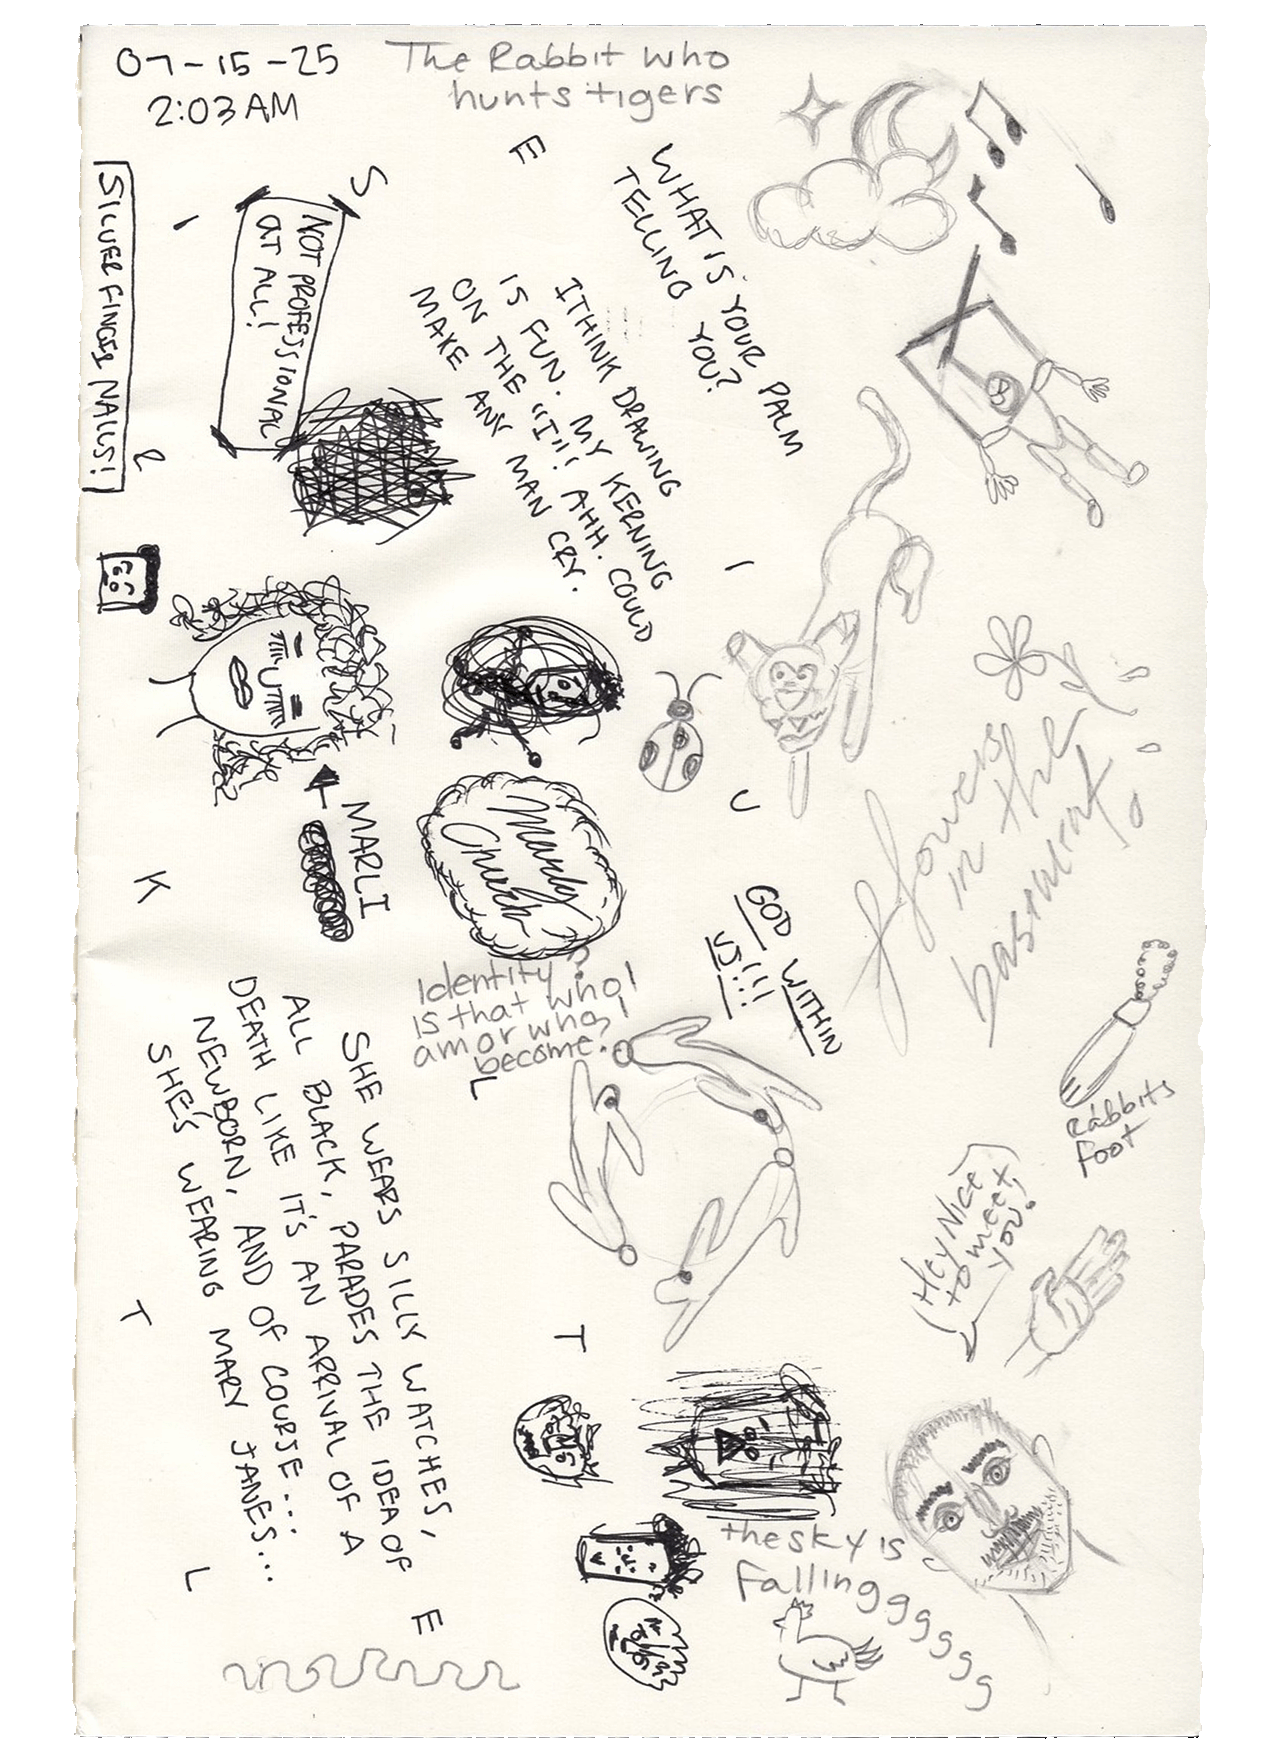 07-15-25
2:03AM
The Rabbit who
hunts tigers
SILVER FINGER NAILS!
NOT PROFESSIONAL
AT ALL!
WHAT IS YOUR PALM
TELLING YOU?
I THINK DRAWING
IS FUN. MY KERNING
ON THE "I"! AHH. COULD
MAKE ANY MAN CRY.
MARLI
Church
flowers
in the
basement
GOD WITHIN
US!!!
Identity?
is that who I
am or who I
become?
rabbits
foot
Hey Nice
to meet
you!
SHE WEARS SILLY WATCHES,
ALL BLACK, PARADES THE IDEA OF
DEATH LIKE IT'S AN ARRIVAL OF A
NEWBORN, AND OF COURSE...
SHE'S WEARING MARY JANES...
the sky is
fallinggggggg
S
E
I
L
I
U
K
L
T
T
L
E